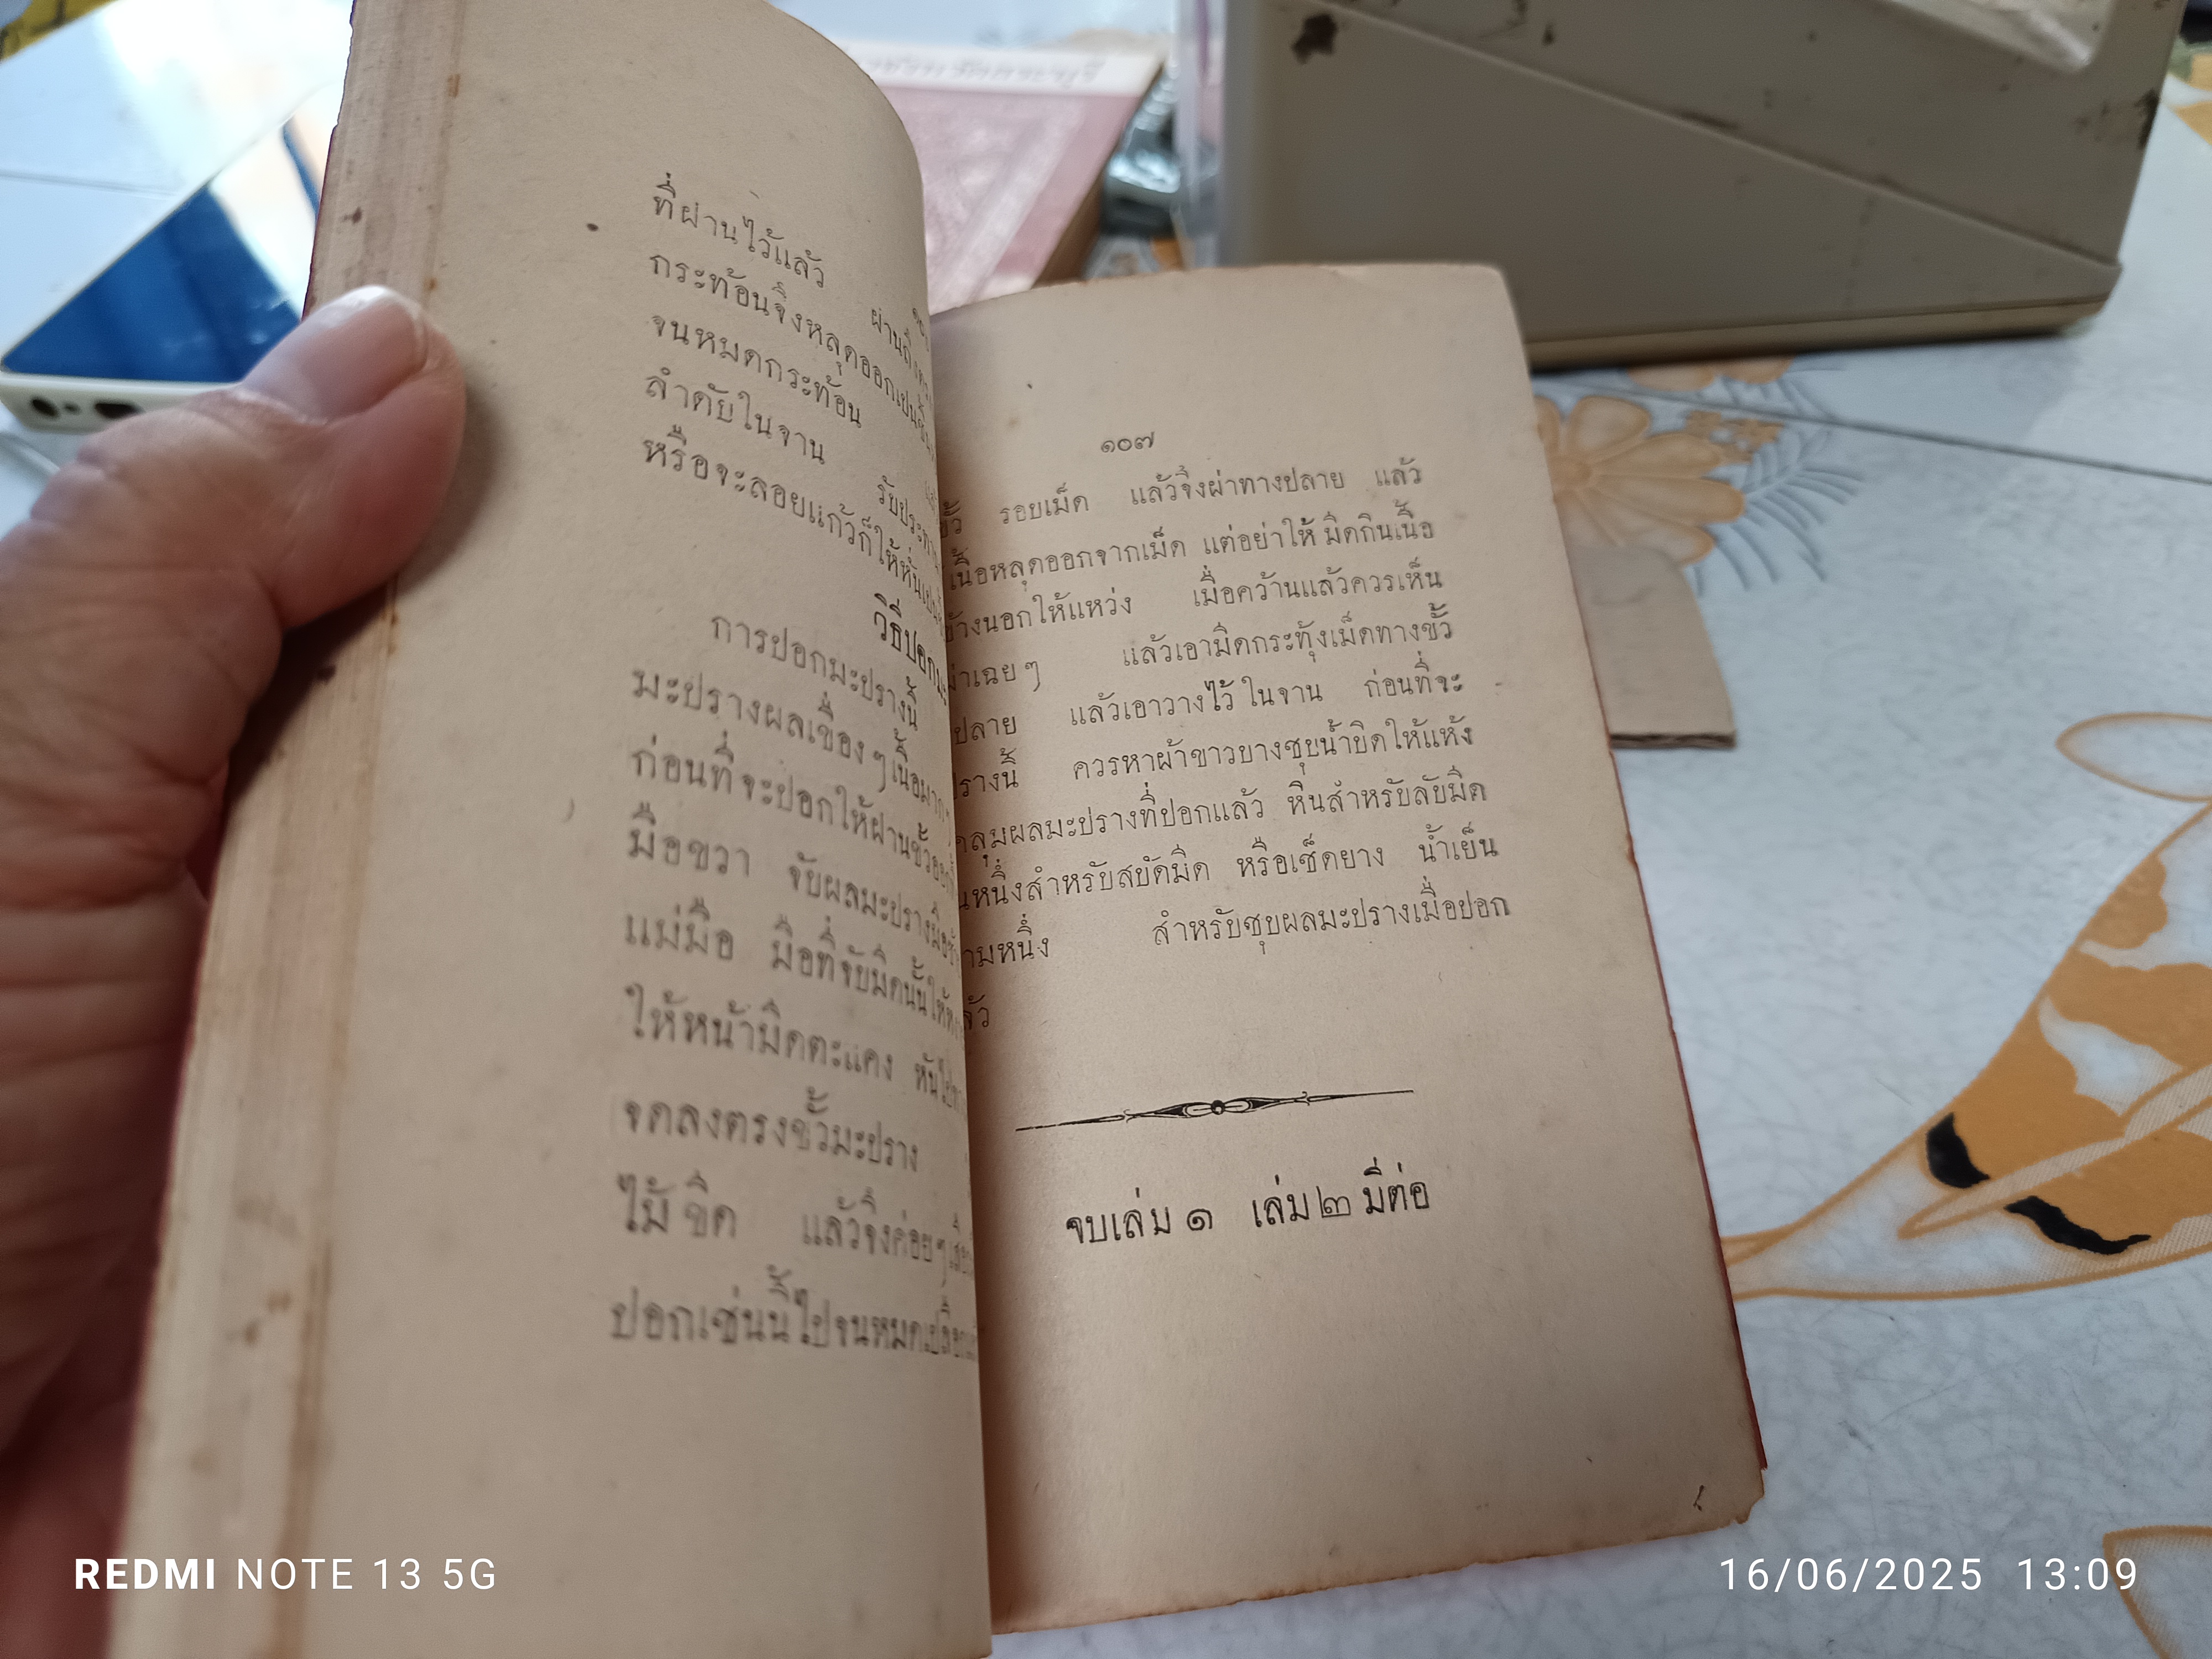 ที่ผ่านไว้แล้ว
ผ่านถึง
กระท้อนจึงหลุดออกเปนชิ้น
จนหมดกระท้อน
ลำดับในจาน
รับประทาน
หรือจะลอยแก้วก็ให้หั่นเปน
วิธีปอก
การปอกมะปรางนี้
มะปรางผลเขื่องๆเนื้อมาก
ก่อนที่จะปอกให้ฝานขั้วออก
มือขวา จับผลมะปรางมือซ้าย
แม่มือ มือที่จับมีดนั้นให้
ให้หน้ามีดตะแคง หันไป
จดลงตรงขั้วมะปราง
ไม้ขีด แล้วจึงค่อยๆ
ปอกเช่นนี้ไปจนหมด
๑๐๗
ขั้ว รอบเม็ด แล้วจึงผ่าทางปลาย แล้ว
เนื้อหลุดออกจากเม็ด แต่อย่าให้มีดกินเนื้อ
ข้างนอกให้แหว่ง เมื่อคว้านแล้วควรเห็น
ผ่าเฉยๆ แล้วเอามีดกระทุ้งเม็ดทางขั้ว
ปลาย แล้วเอาวางไว้ในจาน ก่อนที่จะ
ปรางนี้ ควรหาผ้าขาวบางชุบน้ำบิดให้แห้ง
คลุมผลมะปรางที่ปอกแล้ว หินสำหรับลับมีด
หนึ่งสำหรับสบัดมีด หรือเช็ดยาง น้ำเย็น
ามหนึ่ง สำหรับชุบผลมะปรางเมื่อปอก
แล้ว
จบเล่ม ๑ เล่ม ๒ มีต่อ
REDMI NOTE 13 5G
16/06/2025 13:09